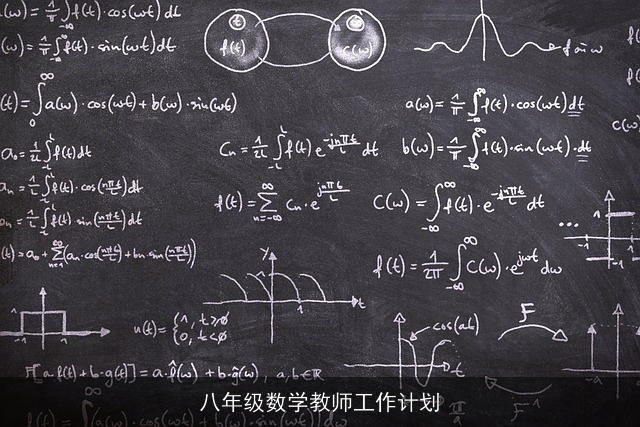 (ω) = 1/π ∫f(t)·cos(ωt) dt
(ω) = 1/π ∫f(t)·sin(ωt) dt
f(t) c(ω)
(t) = ∫₀^∞ a(ω)·cos(ωt) + b(ω)·sin(ωt)
a(ω) = 1/π ∫_{-∞}^{∞} f(t)·cos(ωt) dt
a₀ = 1/2L ∫_{-L}^{L} f(t) dt
Cn = 1/2L ∫_{-L}^{L} f(t) e^{-jnπt/L} dt
b(ω) = 1/π ∫_{-∞}^{∞} f(t)·sin(ωt)·dt
an = 1/L ∫_{-L}^{L} f(t)·cos(nπt/L) dt
f(t) = ∑_{n=-∞}^{∞} Cn·e^{jnπt/L}
C(ω) = ∫_{-∞}^{∞} f(t)·e^{-jnπt/L} dt
bn = 1/L ∫_{-L}^{L} f(t)·sin(nπt/L) dt
(t) = a₀ + ∑_{n=1}^{∞} (an·cos(nπt/L) + bn·sin(nπt/L))
f(t) = 1/2π ∫_{-∞}^{∞} C(ω)·e^{jωt} dω
y t 1
u(t) = {1, t≥0
0, t<0
cos(at)
F
F[a·f(t) + b·g(t)] = a·f̂(ω) + b·ĝ(ω), a,b∈ℝ
F⁻¹
八年级数学教师工作计划